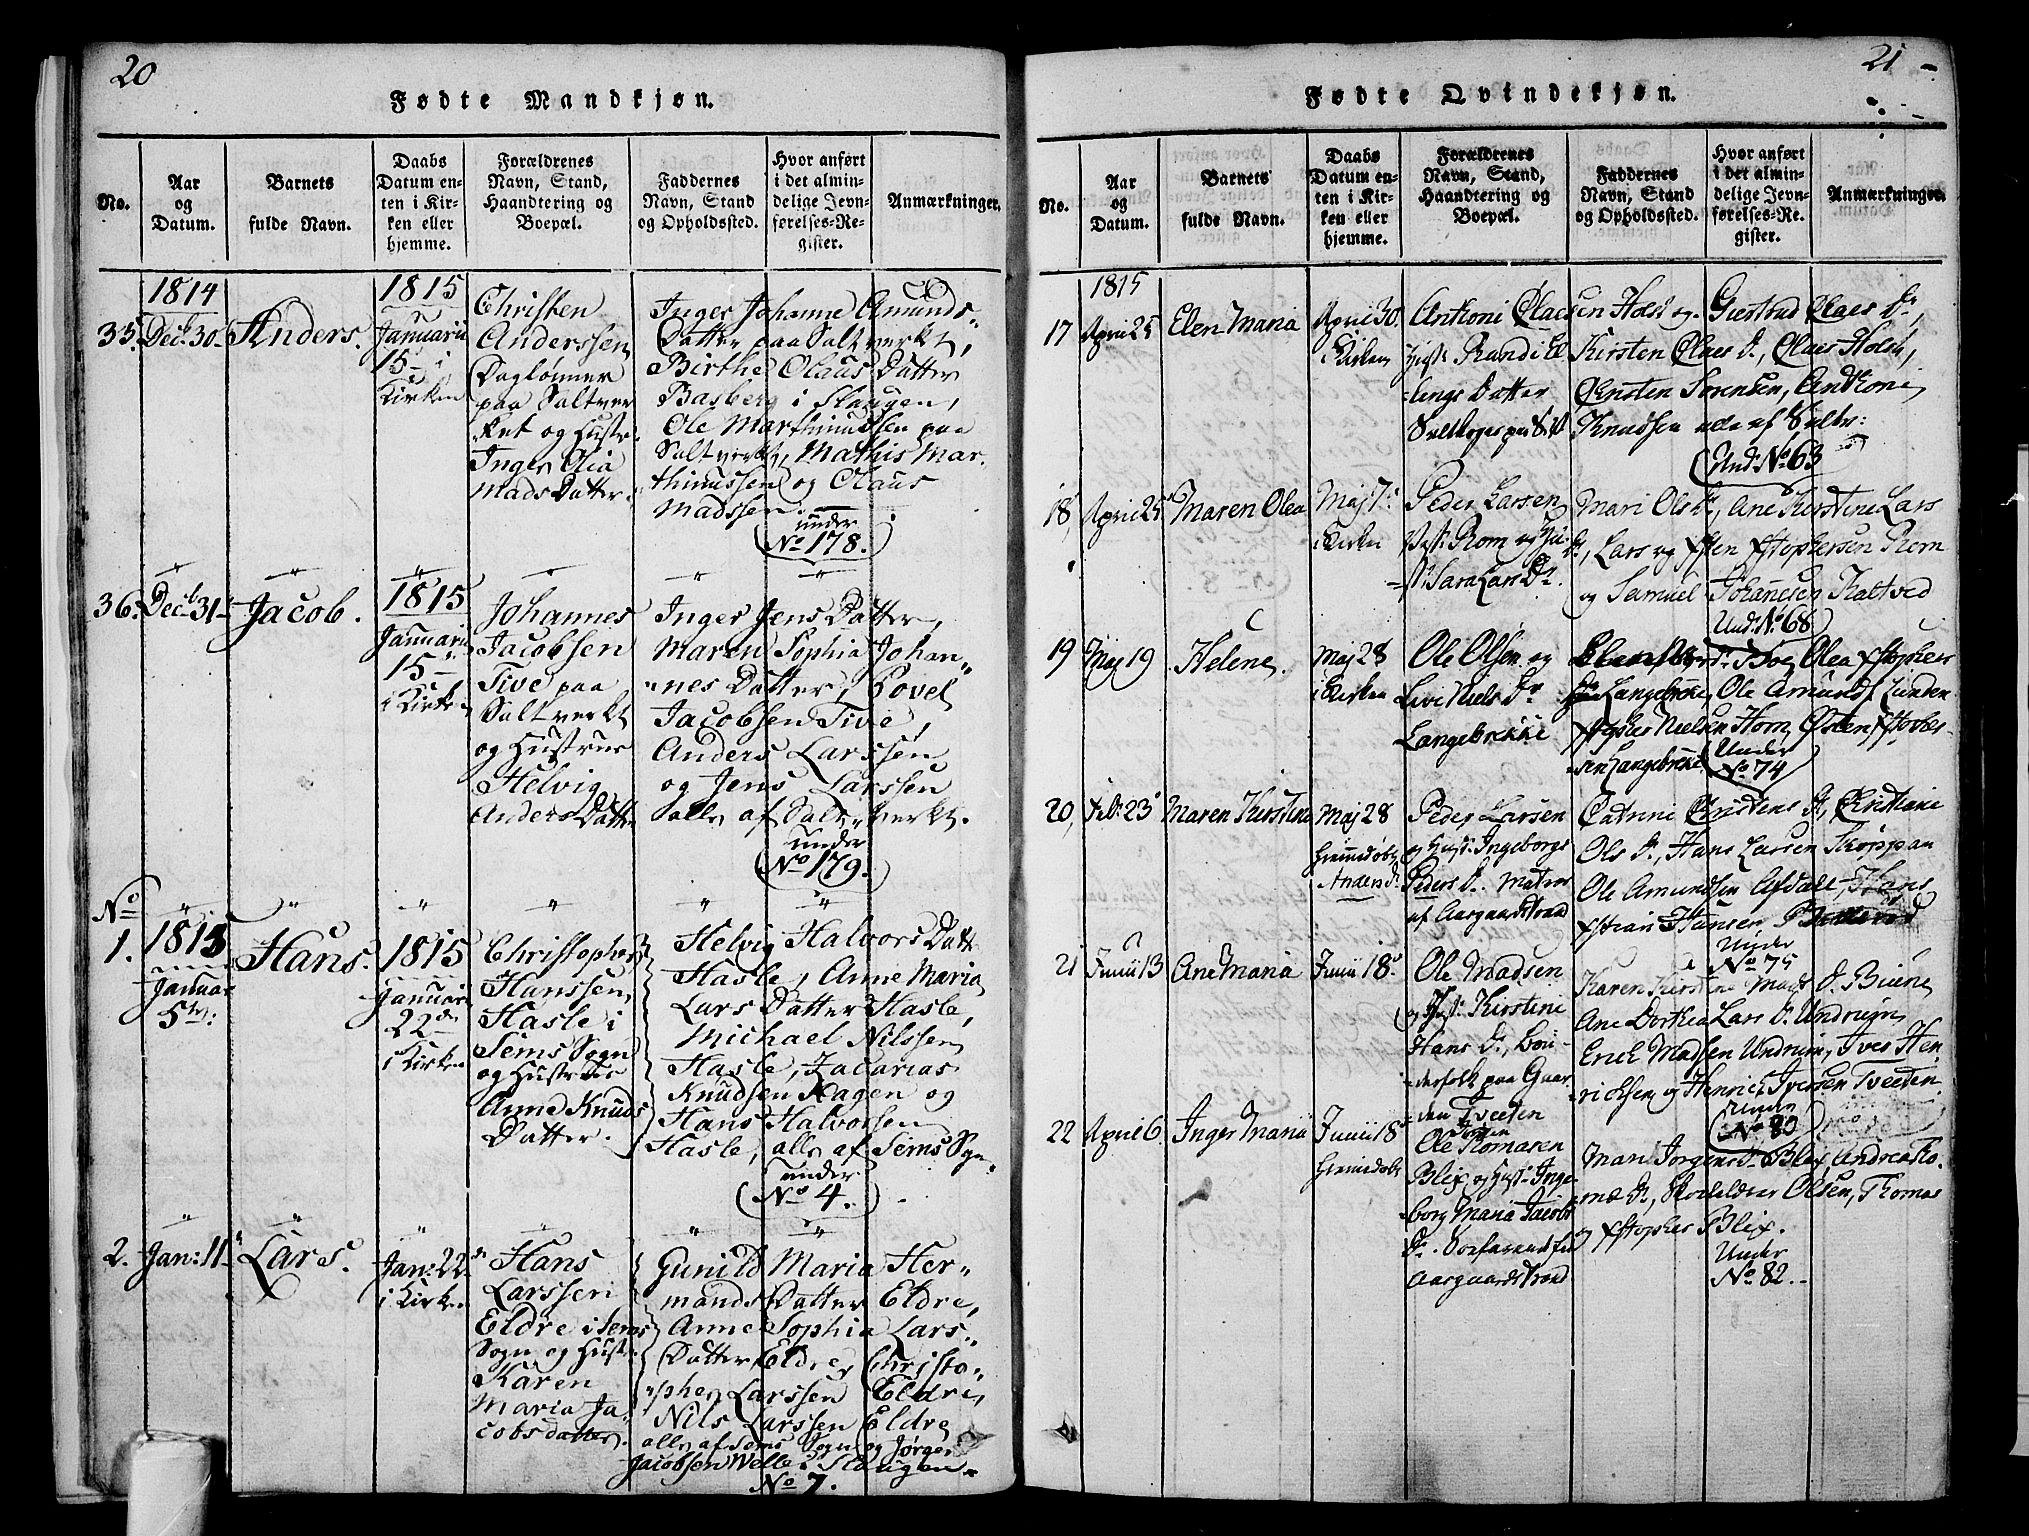 20
Fødte Mandkjøn.
No.
Aar
og
Datum.
Barnets
fulde Navn.
Daabs
Datum en-
ten i Kir-
ken eller
hjemme.
Forældrenes
Navn, Stand,
Haandtering og
Boepæl.
Faddernes
Navn, Stand
og Opholdssted.
Hvor anført
i det almin-
delige Jevn-
førelses-Re-
gister.
Anmærkninger.
1814
35. Dec. 30
Anders.
1815
Januarii
15
i
Kirken
Christen
Anderssen
Daglønner
paa Saltver
ket og Hustr.
Inger Olia
Mads Datter.
Inger Johanne Amunds
Datter paa Saltverket,
Birthe Olaus Datter
Basberg i Slaugen,
Ole Marthinussen paa
Saltverket, Mathis Mar
thinussen og Olaus
Madssen.
under
No 178.
36. Decb 31
Jacob.
1815
Januarii
15
i Kirken
Johannes
Jacobsen
Tive paa
Saltverket
og Hustrue
Helvig
Anders Datter
Inger Jens Datter,
Maren Sophia Johan
nes Datter, Povel
Jacobsen Tive,
Anders Larssen
og Jens Larssen
alle af Saltverket.
under
No 179.
No
1.
1815
Januar
5te
Hans.
1815
Januarii
22de
i Kirken
Christopher
Hanssen
Hasle i
Sems Sogn
og Hustrue
Anne Knuds
Datter.
Helvig Halvors Datt
Hasle, Anne Maria
Lars Datter Hasle,
Michael Nilssen
Hasle, Zacarias
Knudsen Hagen og
Hans Halvorsen
Hasle, alle af Sems Sogn
under
No 4.
2. Jan: 11
Lars.
Jan: 22
i Kirken
Hans
Larssen
Eldre i Sems
Sogn og Hust
Karen
Maria Ja
cobsdatter.
Gunild Maria Her
mands Datter Eldre,
Anne Sophia Lars
Datter Eldre, Christo
pher Larssen Eldre,
Nils Larssen Eldre
alle af Sems Sogn og Jørgen
Jacobsen Welle i Slaugen.
No 7.
21
Fødte Qvindekjøn.
No.
Aar
og
Datum.
Barnets
fulde Navn.
Daabs
Datum en-
ten i Kir-
ken eller
hjemme.
Forældrenes
Navn, Stand,
Haandtering og
Boepæl.
Faddernes
Navn, Stand
og Opholdssted.
Hvor anført
i det almin-
delige Jevn-
førelses-Re-
gister.
Anmærkninger.
1815
17 April 25
Elen Maria
April 30.
i Kirken
Antoni Olaesen Holst og
Hust. Randi El
lings Datter
Giertrud Olaes Dr,
Kirsten Olaes D., Olaes Holst,
Kersten Sørensen, Anthoni
Knudsen
Und: No 63
18, April 25
Maren Olea
Maj 7.
i Kirken
Peder Larsen
Rom og Hu
Sara Lars Dr.
Mari Ols Dr, Ane Kirstine Lars
Dr, Lars og
Rom
og Samuel Johannesen
Und: No. 68
19 Maj 19
Helene.
Maj 28
i Kirken
Ole Olsen og
Live Niels Dr
Langebrekke
Boe, Olea
Langebrekke, Ole Amunds Lunden
Nielsen Horn, Østen
sen Langebrekke
Under
No 74
20, Feb. 23
Maren Kirstine
Maj 28
hiemedøbt
Anders D.
Peder Larsen
og Hust. Ingeborg
Peders D. Matros
af Aasgaardstrand
Catrine Cristens D., Cristiane
Ols D., Hans Larsen
Ole Amundsen Afdall, Hans
Hansen
Under
No 75
21 Junii 13
Ane Maria
Junii 18.
Ole Madsen
og Hust. Kirstine
Hans D., Bon
derfolk paa Gaar
den Tveeten
Karen Kirstine Mads D. Biune,
Ane Dorthea Lars D. Undrum,
Erich Madsen Undrum, Iver Hen
richsen og Henrich Iversen Tveeten
Under
No 80
22 April 6.
Inger Maria
Junii 18
hiemedøbt
Ole Tomasen
Blix og Hust. Inge
borg Maria Jacobs
Dr. Søefarende fra
Aasgaardstrand
Mari Jørgens Dr Blix, Andrea To
mæ Dr, Olsen, Thomas
og Blix.
Under
No 82.